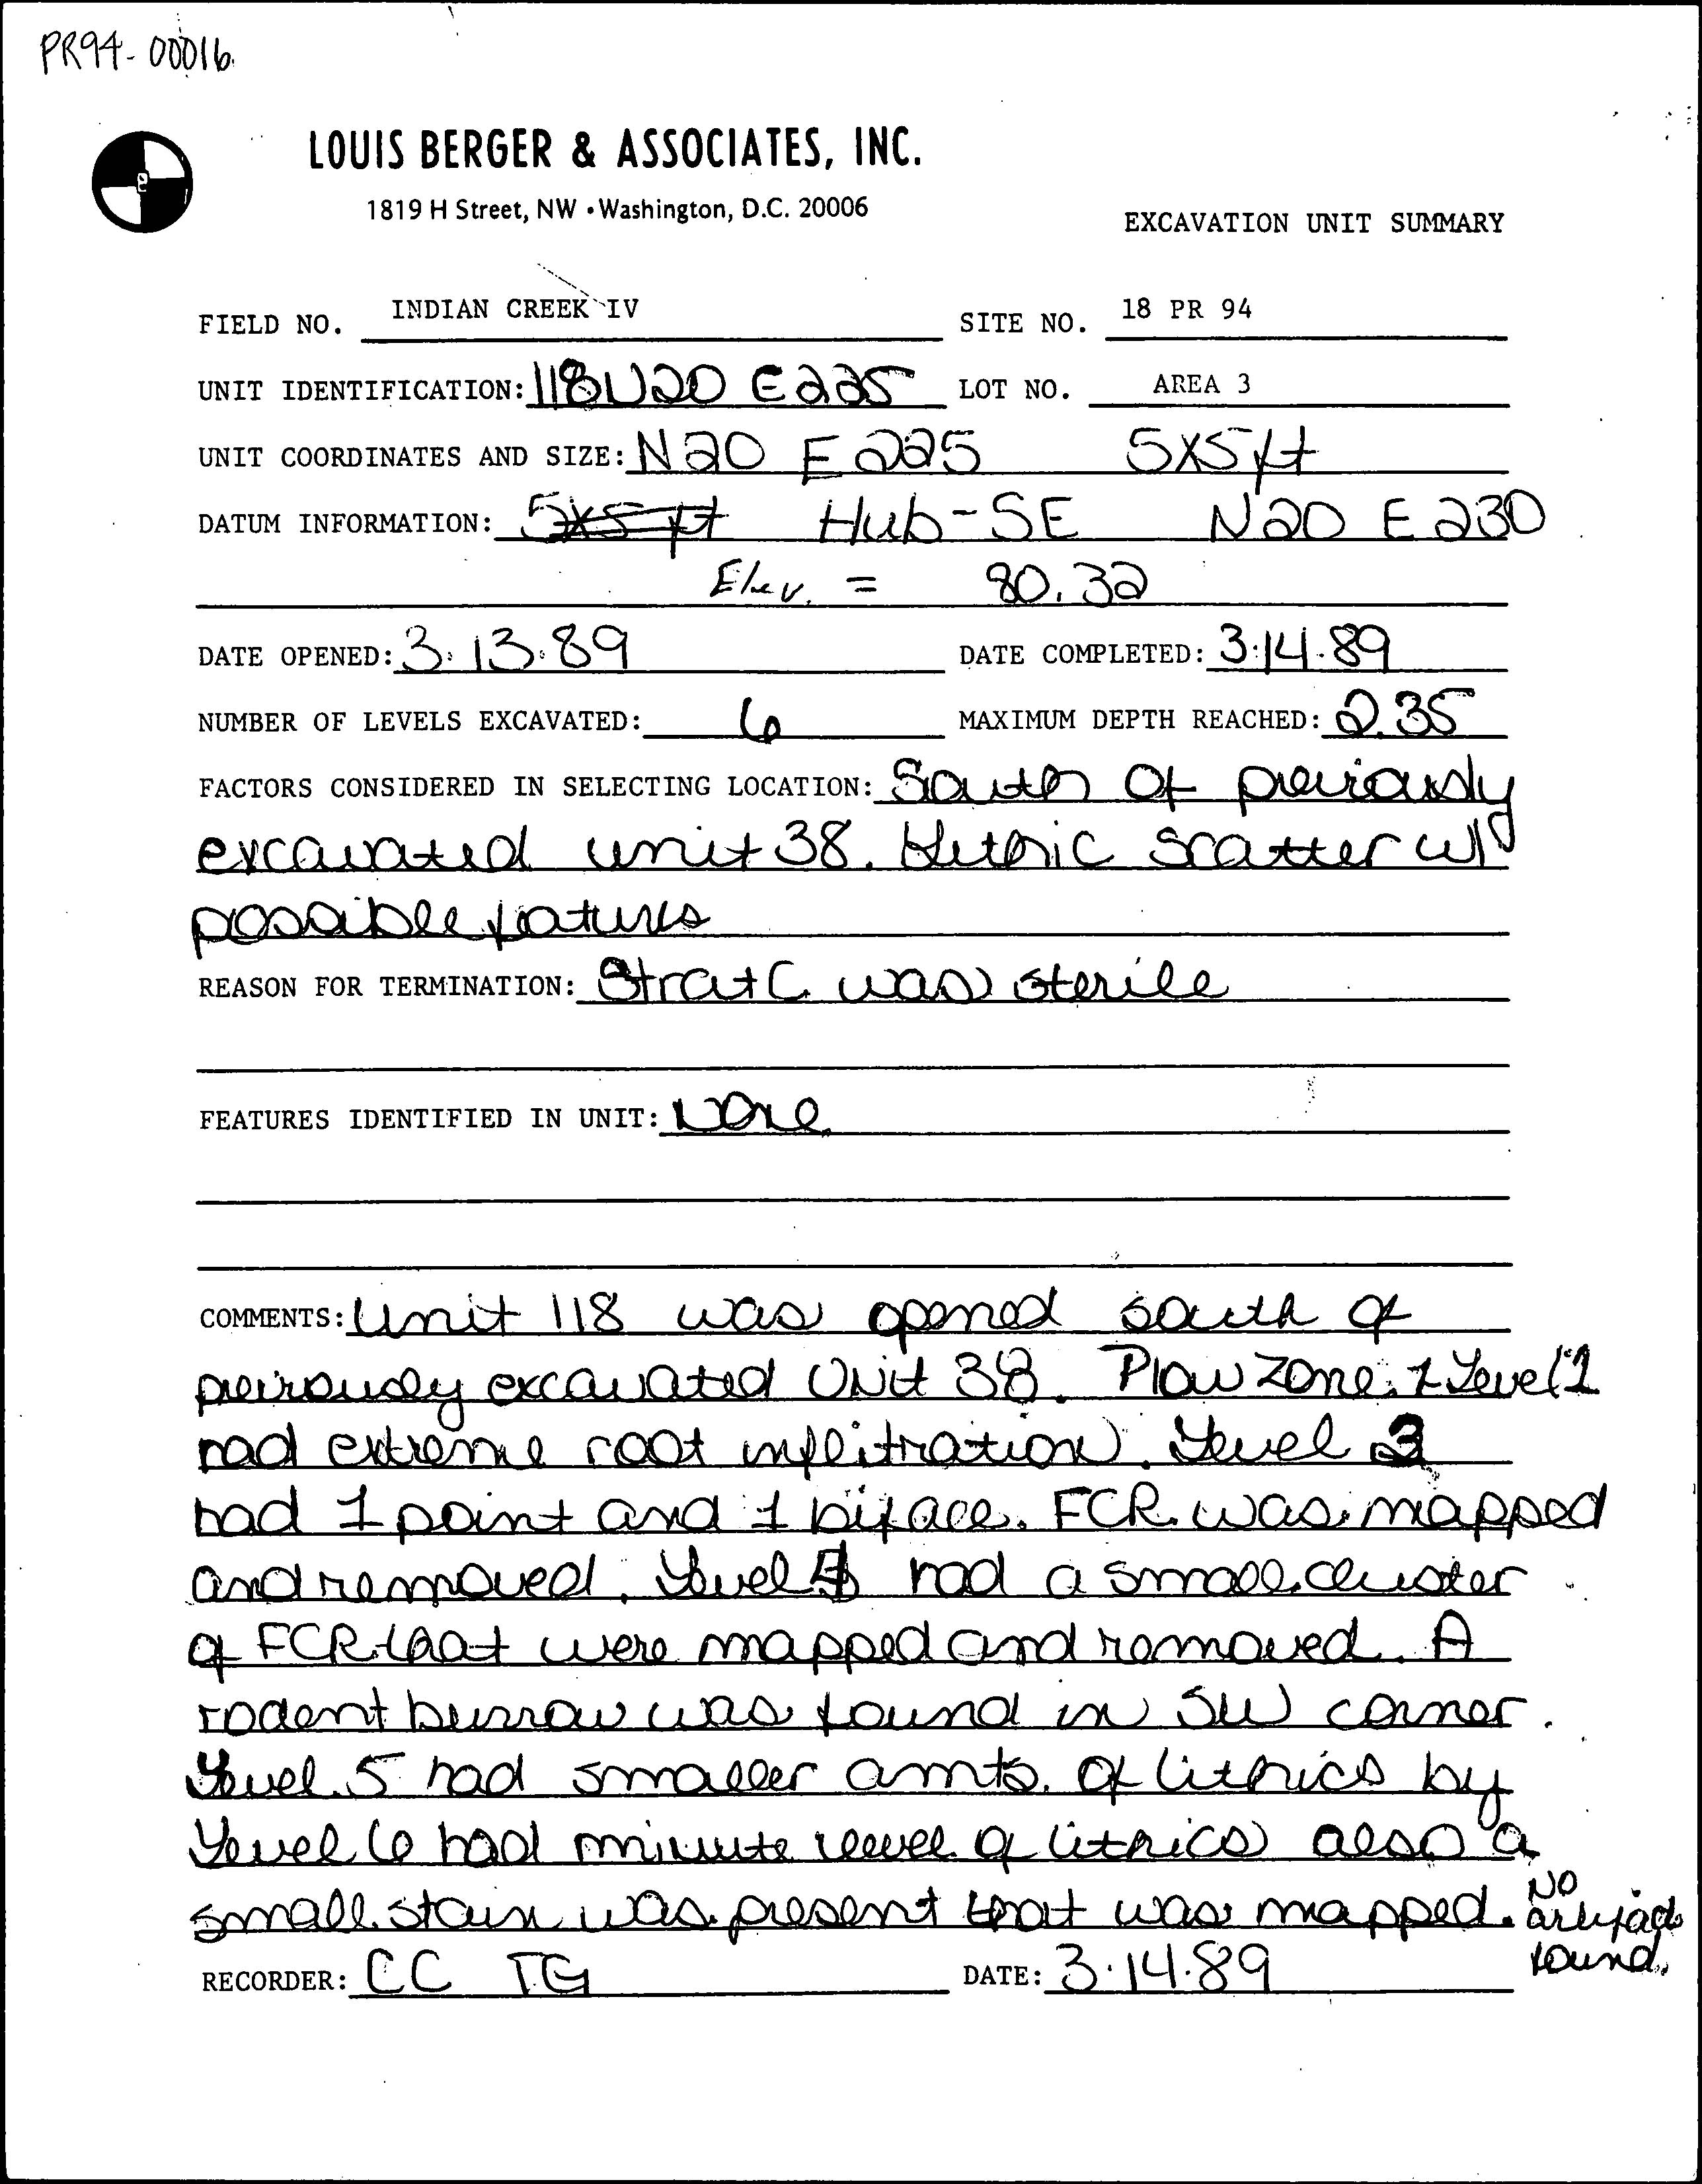 PR94-00016
LOUIS BERGER & ASSOCIATES, INC.
1819 H Street, NW • Washington, D.C. 20006
EXCAVATION UNIT SUMMARY
FIELD NO. INDIAN CREEK IV SITE NO. 18 PR 94
UNIT IDENTIFICATION: 118 N20 E225 LOT NO. AREA 3
UNIT COORDINATES AND SIZE: N20 E225 5x5 ft
DATUM INFORMATION: 5x5 ft Hub-SE N20 E230
Elev. = 80.32
DATE OPENED: 3.13.89 DATE COMPLETED: 3.14.89
NUMBER OF LEVELS EXCAVATED: 6 MAXIMUM DEPTH REACHED: 2.35
FACTORS CONSIDERED IN SELECTING LOCATION: South of previously
excavated unit 38. Lithic scatter w/
possible features
REASON FOR TERMINATION: Strat C was sterile
FEATURES IDENTIFIED IN UNIT: None
COMMENTS: Unit 118 was opened south of
previously excavated Unit 38. Plow zone, Level 1
had extreme root infiltration. Level 3
had 1 point and 1 biface. FCR was mapped
and removed. Level 4 had a small cluster
of FCR that were mapped and removed. A
rodent burrow was found in SW corner.
Level 5 had smaller amts. of lithics by
Level 6 had minute level of lithics also a
small stain was present that was mapped. No
artifacts
found.
RECORDER: CC TG DATE: 3.14.89